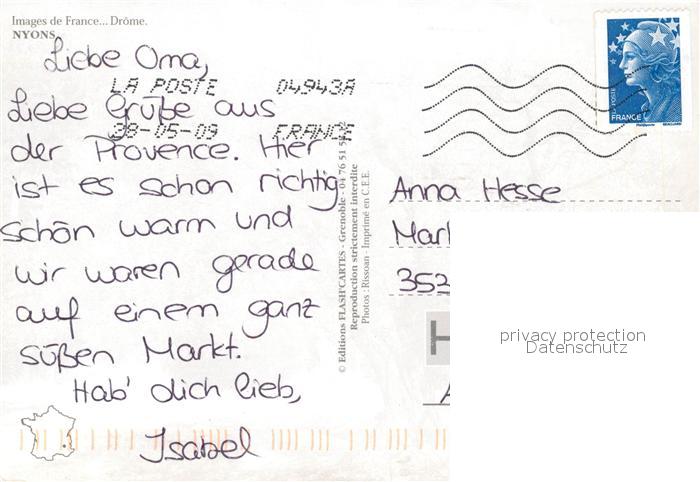 Images de France... Drôme.
NYONS
Liebe Oma,
LA POSTE 04943A
Liebe Grüße aus
28-05-09 FRANCE
der Provence. Hier
ist es schon richtig
schön warm und
wir waren gerade
auf einem ganz
süßen Markt.
Hab' dich lieb,
Isabel
© Editions FLASH'CARTES - Grenoble - 04 76 51 5
Reproduction strictement interdite
Photos : Rissoan - Imprimé en C.E.E.
LA POSTE
FRANCE
Anna Hesse
Mar
352
privacy protection
Datenschutz